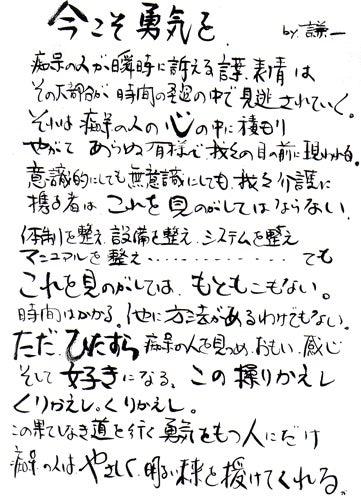 今こそ勇気を
by.謙一
痴呆の人が瞬時に訴える言葉、表情は
その大部分が、時間の経過の中で見逃されていく。
それは痴呆の人の心の中に積もり
やがて あらゆる有様で、我々の目の前に現われる。
意識的にしても無意識にしても、我々介護に
携る者は これを見のがしてはならない。
体制を整え、設備を整え、システムを整え
マニュアルを整え・・・・・・・・・・・・ても
これを見のがしては、もともこもない。
時間はかかる。他に方法があるわけでもない。
ただ、ひたすら 痴呆の人を見つめ、おもい、感じ
そして 好きになる。この操りかえし
くりかえし。くりかえし。
この果てしなき道を行く勇気をもつ人にだけ
痴呆の人は やさしく、明るい未来を授けてくれる。